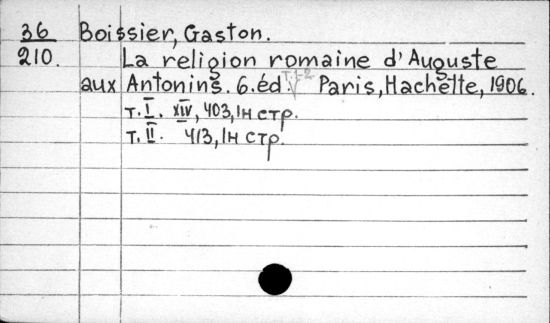 36 Boissier, Gaston.
210. La religion romaine d'Auguste
aux Antonins. 6.éd. т.1-2 Paris, Hachette, 1906.
т. I. XIV, 403, 1н стр.
т. II. 413, 1н стр.